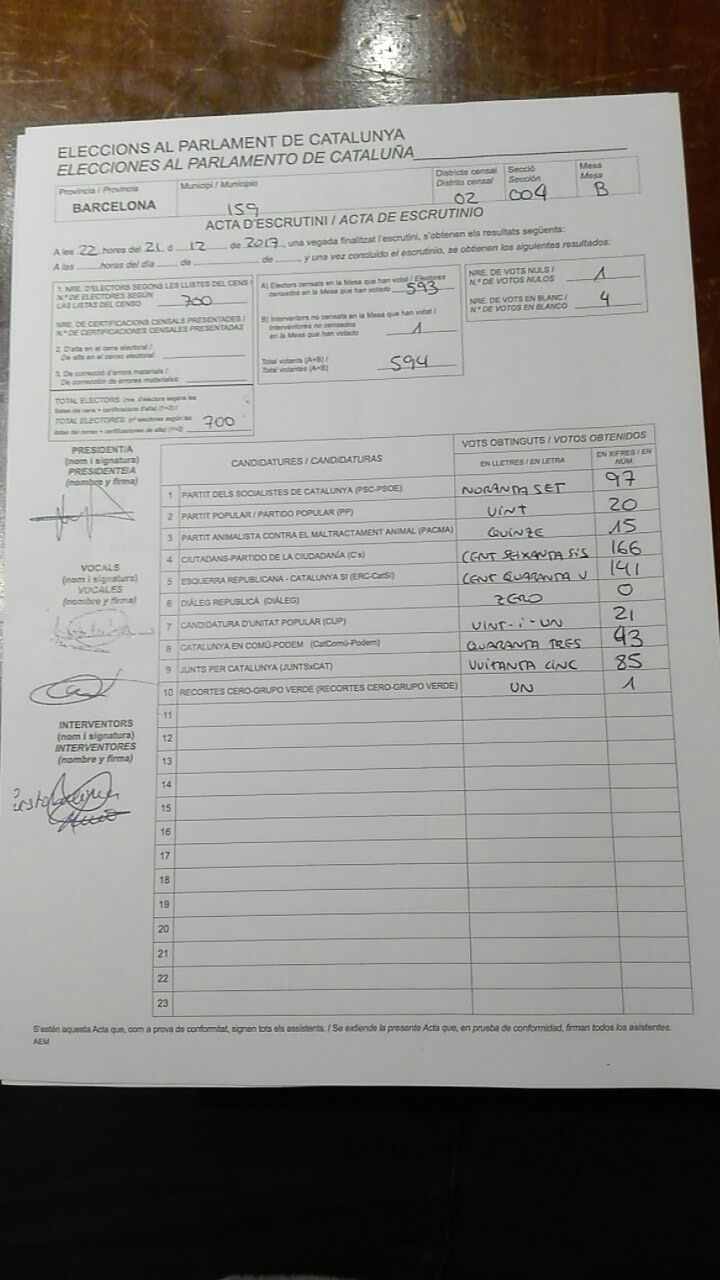 ELECCIONS AL PARLAMENT DE CATALUNYA
ELECCIONES AL PARLAMENTO DE CATALUÑA
Província / Provincia
BARCELONA
Municipi / Municipio
159
Districte censal
Distrito censal
02
Secció
Sección
004
Mesa
Mesa
B
ACTA D'ESCRUTINI / ACTA DE ESCRUTINIO
A les 22 hores del 21 d 12 de 2017, una vegada finalitzat l'escrutini, s'obtenen els resultats següents:
A las ____ horas del día ____ de ____ de ____, y una vez concluido el escrutinio, se obtienen los siguientes resultados:
1. NRE. D'ELECTORS SEGONS LES LLISTES DEL CENS /
N.º DE ELECTORES SEGÚN
LAS LISTAS DEL CENSO 700
NRE. DE CERTIFICACIONS CENSALS PRESENTADES /
N.º DE CERTIFICACIONES CENSALES PRESENTADAS
2. D'alta en el cens electoral /
De alta en el censo electoral:
3. De correcció d'errors materials /
De corrección de errores materiales:
TOTAL ELECTORS: (nre. d'electors segons les
llistes del cens + certificacions d'alta) (1+2) /
TOTAL ELECTORES: (nº electores según las
listas del censo + certificaciones de alta) (1+2) 700
A) Electors censats en la Mesa que han votat / Electores
censados en la Mesa que han votado 593
B) Interventors no censats en la Mesa que han votat /
Interventores no censados
en la Mesa que han votado 1
Total votants (A+B) /
Total votantes (A+B) 594
NRE. DE VOTS NULS /
N.º DE VOTOS NULOS 1
NRE. DE VOTS EN BLANC /
N.º DE VOTOS EN BLANCO 4
PRESIDENT/A
(nom i signatura)
PRESIDENTE/A
(nombre y firma)
VOCALS
(nom i signatura)
VOCALES
(nombre y firma)
INTERVENTORS
(nom i signatura)
INTERVENTORES
(nombre y firma)
CANDIDATURES / CANDIDATURAS
VOTS OBTINGUTS / VOTOS OBTENIDOS
EN LLETRES / EN LETRA
EN XIFRES / EN
NÚM.
1 PARTIT DELS SOCIALISTES DE CATALUNYA (PSC-PSOE) NORANTA SET 97
2 PARTIT POPULAR / PARTIDO POPULAR (PP) VINT 20
3 PARTIT ANIMALISTA CONTRA EL MALTRACTAMENT ANIMAL (PACMA) QUINZE 15
4 CIUTADANS-PARTIDO DE LA CIUDADANÍA (C's) CENT SEIXANTA SIS 166
5 ESQUERRA REPUBLICANA - CATALUNYA SI (ERC-CatSI) CENT QUARANTA U 141
6 DIÀLEG REPUBLICÀ (DIÀLEG) ZERO 0
7 CANDIDATURA D'UNITAT POPULAR (CUP) VINT-I-UN 21
8 CATALUNYA EN COMÚ-PODEM (CatComú-Podem) QUARANTA TRES 43
9 JUNTS PER CATALUNYA (JUNTSxCAT) VUITANTA CINC 85
10 RECORTES CERO-GRUPO VERDE (RECORTES CERO-GRUPO VERDE) UN 1
11
12
13
14
15
16
17
18
19
20
21
22
23
S'estén aquesta Acta que, com a prova de conformitat, signen tots els assistents. / Se extiende la presente Acta que, en prueba de conformidad, firman todos los asistentes.
AEM